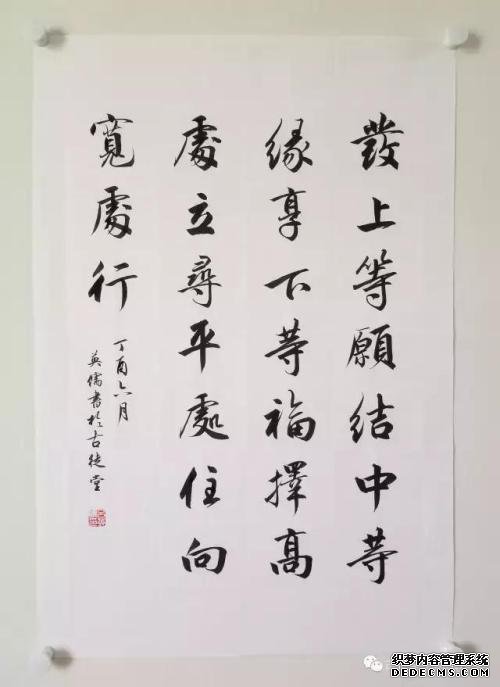 發上等願結中等
緣享下等福擇高
處立尋平處住向
寬處行
丁酉六月
英儒書於古徒堂
织梦内容管理系统
DEDECMS.COM